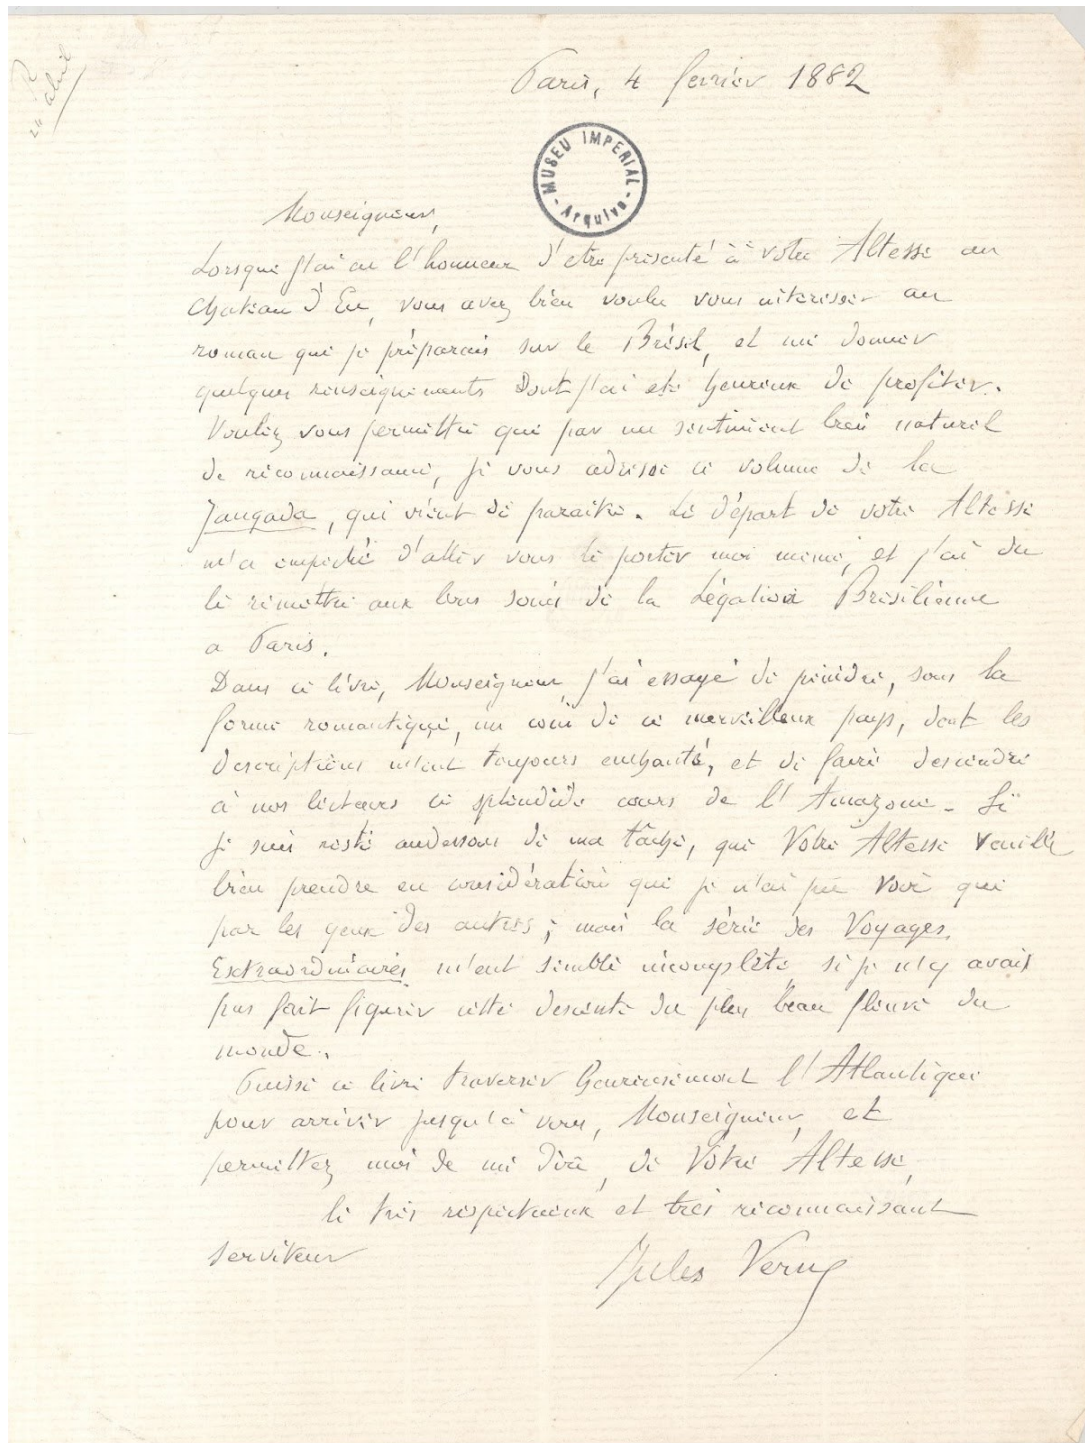 24 abril
Paris, 4 fevrier 1882
MUSEU IMPERIAL
- Arquivo -
Monseigneur,
Lorsque j'ai eu l'honneur d'etre présenté à votre Altesse au
chateau d'Eu, vous avez bien voulu vous intéresser au
roman que je préparais sur le Brésil, et me donner
quelques renseignements dont j'ai été heureux de profiter.
Voulez vous permettre que par un sentiment bien naturel
de reconnaissance, je vous adresse ce volume de la
Jangada, qui vient de paraitre. Le départ de votre Altesse
m'a empêché d'aller vous le porter moi meme, et j'ai du
le remettre aux bons soins de la Légation Brésilienne
a Paris.
Dans ce livre, Monseigneur, j'ai essayé de peindre, sous la
forme romantique, un coin de ce merveilleux pays, dont les
descriptions m'ont toujours enchanté, et de faire descendre
à nos lecteurs ce splendide cours de l'Amazone. Si
je suis resté audessous de ma tâche, que Votre Altesse veuille
bien prendre en considération que je n'ai pu voir que
par les yeux des autres; mais la série des Voyages
Extraordinaires m'eut semblé incomplète, si je n'y avais
pas fait figurer cette descente du plus beau fleuve du
monde.
Puisse ce livre traverser heureusement l'Atlantique
pour arriver jusqu'à vous, Monseigneur, et
permettez moi de me dire, de Votre Altesse,
le très respectueux et très reconnaissant
serviteur
Jules Verne